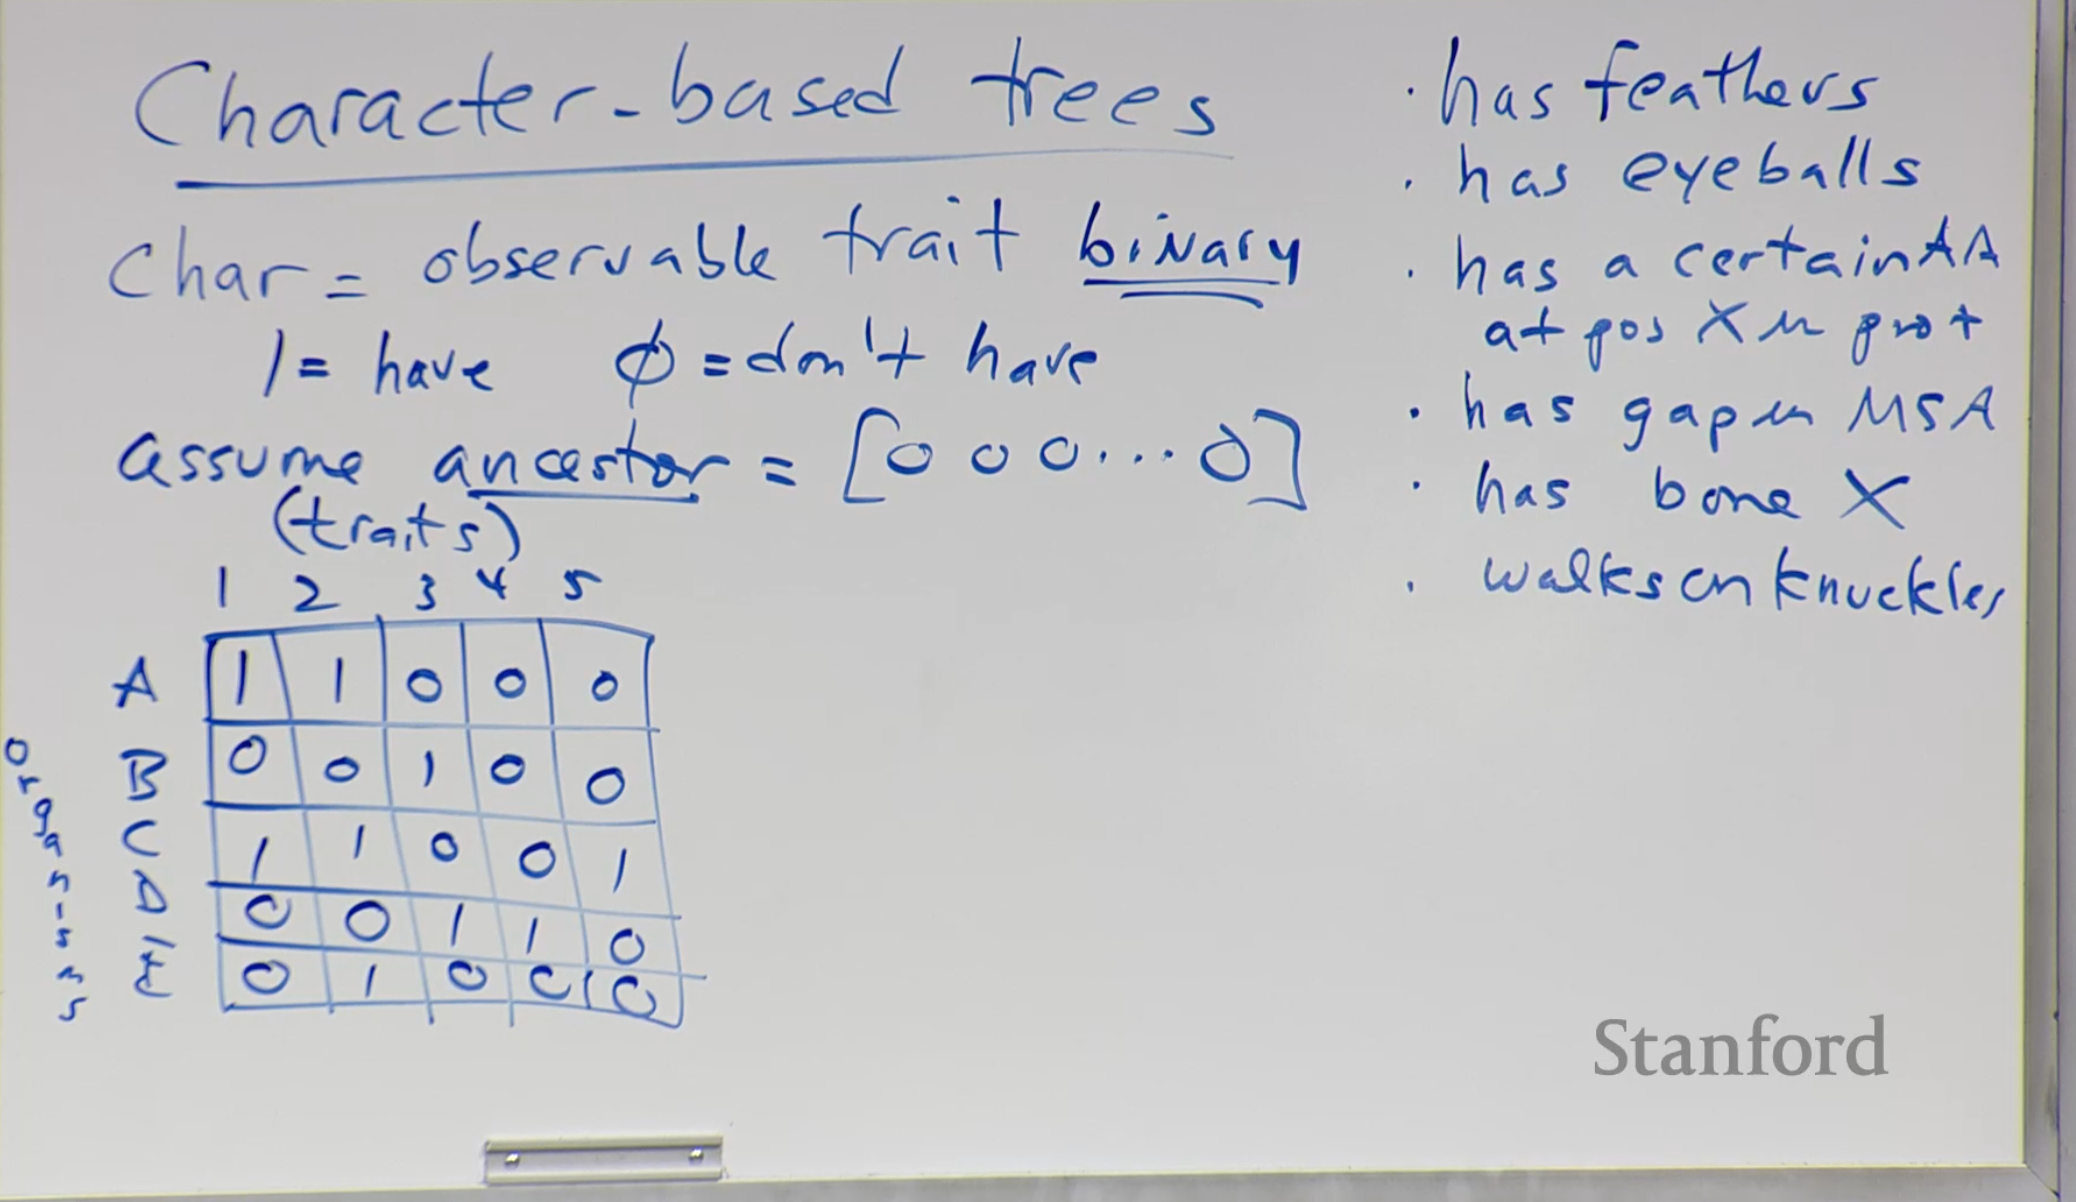 Character-based trees
Char = observable trait binary
1 = have ϕ = don't have
assume ancestor = [0 0 0 ... 0]
(traits)
1 2 3 4 5
A 1 1 0 0 0
B 0 0 1 0 0
C 1 1 0 0 1
D 0 0 1 1 0
E 0 1 0 0 0
organisms
· has feathers
· has eyeballs
· has a certain AA
at pos X in prot
· has gap in MSA
· has bone X
· walks on knuckles
Stanford